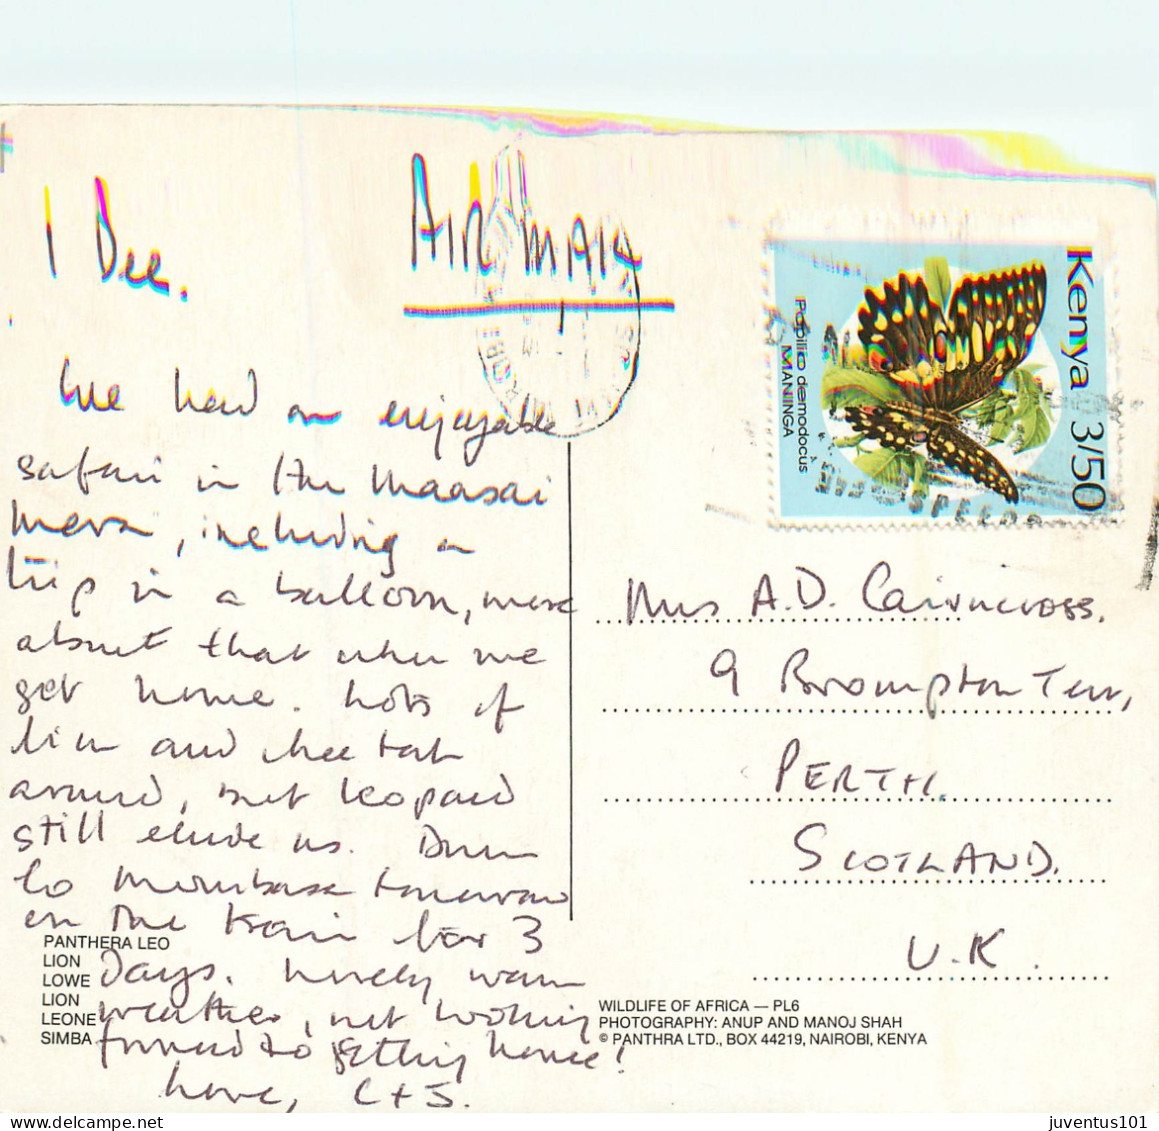 1 Dec.
AIR MAIL
We had an enjoyable
safari in the Maasai
Mara, including a
trip in a balloon, more
about that when we
get home. Lots of
lion and cheetah
around, but leopard
still elude us. Down
to Mombasa tomorrow
on the train for 3
days. Lovely warm
weather, not looking
forward to getting home!
Love, C + J.
PANTHERA LEO
LION
LOWE
LION
LEONE
SIMBA
Kenya 3/50
Papilio demodocus
MANINGA
Mrs A.D. Cairncross,
9 Brompton Terr,
PERTH.
SCOTLAND.
U.K.
WILDLIFE OF AFRICA — PL6
PHOTOGRAPHY: ANUP AND MANOJ SHAH
© PANTHRA LTD., BOX 44219, NAIROBI, KENYA
juventus101